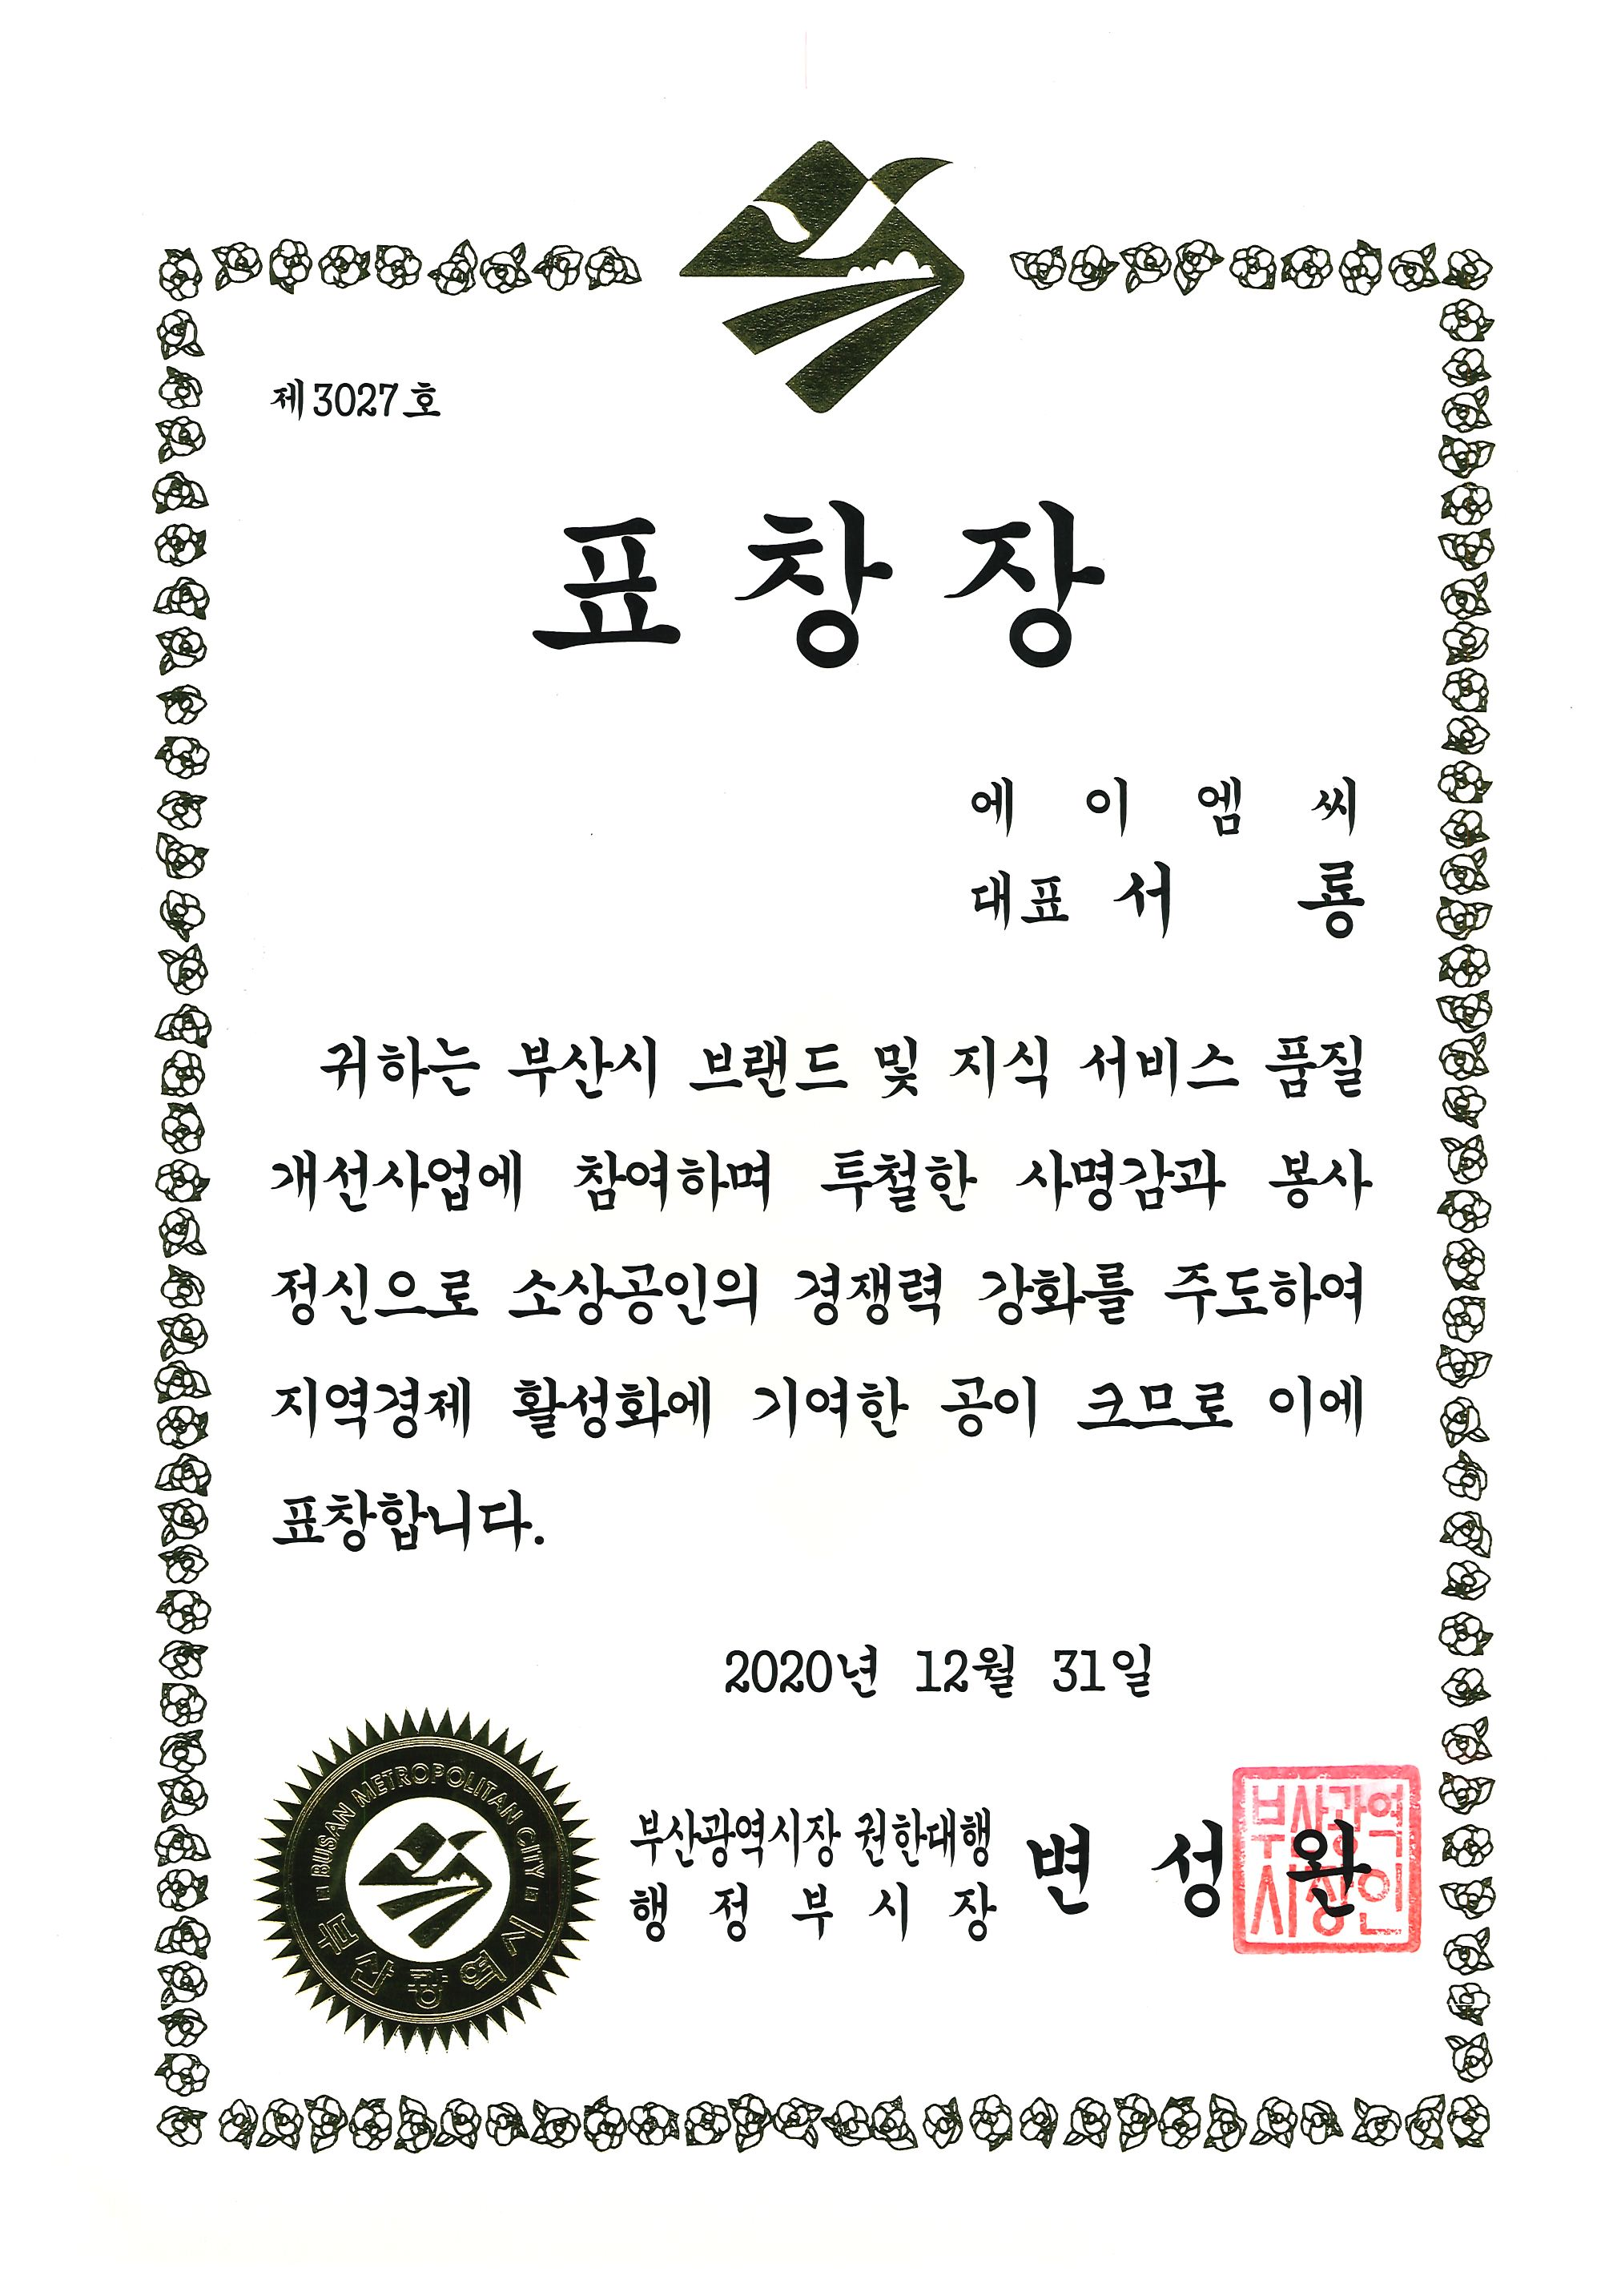 제3027호
표창장
에이엠씨
대표 서룡
귀하는 부산시 브랜드 및 지식 서비스 품질
개선사업에 참여하며 투철한 사명감과 봉사
정신으로 소상공인의 경쟁력 강화를 주도하여
지역경제 활성화에 기여한 공이 크므로 이에
표창합니다.
2020년 12월 31일
BUSAN METROPOLITAN CITY
부산광역시
부산광역시장 권한대행
행정부시장
변성완
부산광역
시장인